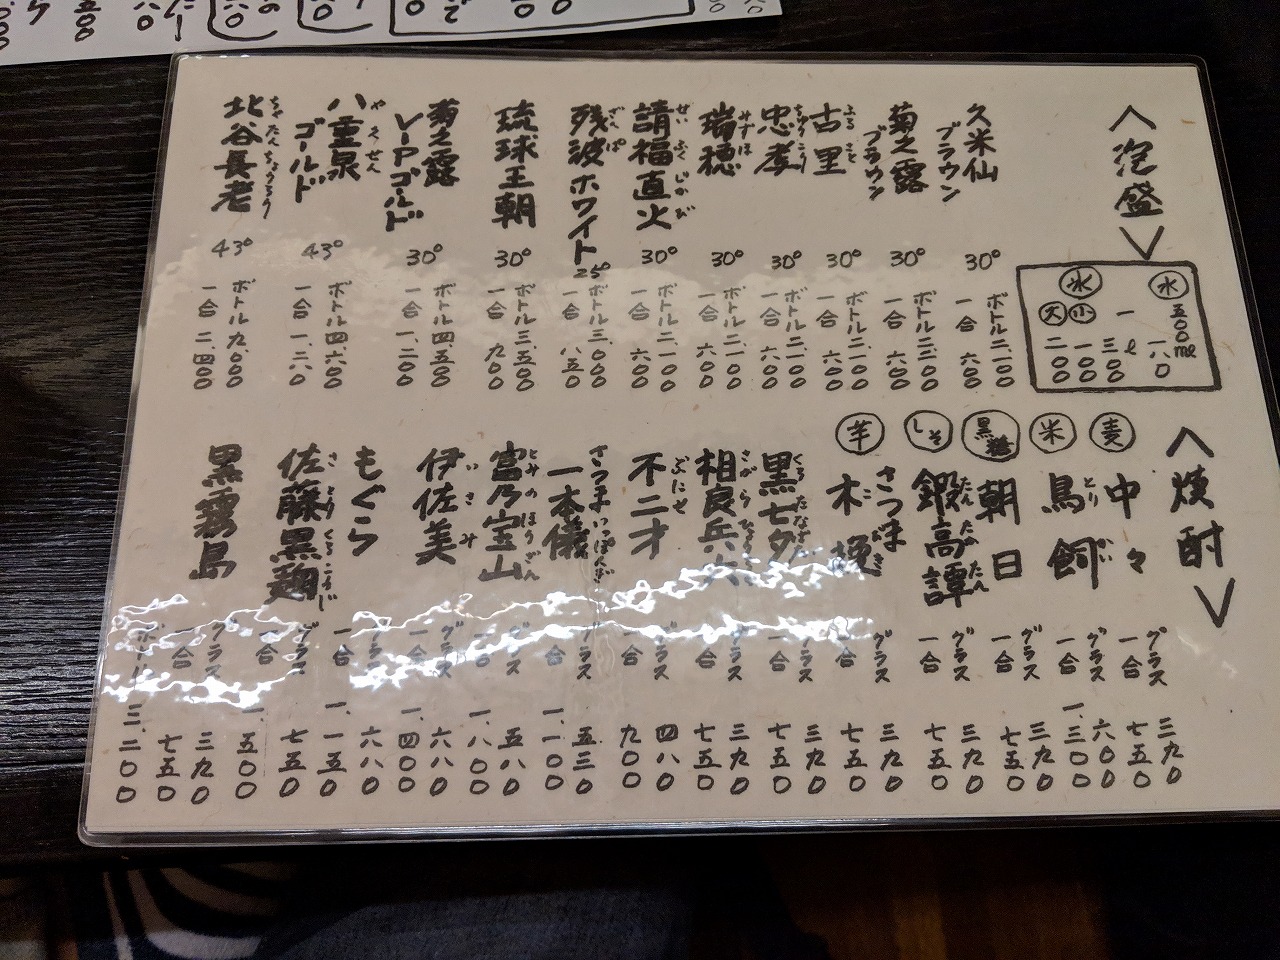 〈泡盛〉
水 五〇〇ml 一八〇
一ℓ 三〇〇
氷 小 一〇〇
大 二〇〇
久米仙ブラウン 30° ボトル 二、一〇〇 一合 六〇〇
菊之露ブラウン 30° ボトル 二、二〇〇 一合 六〇〇
古里 ふるさと 30° ボトル 二、一〇〇 一合 六〇〇
忠孝 ちゅうこう 30° ボトル 二、一〇〇 一合 六〇〇
瑞穂 みずほ 30° ボトル 二、一〇〇 一合 六〇〇
請福直火 せいふくじかび 30° ボトル 二、一〇〇 一合 六〇〇
残波ホワイト ざんぱ 25° ボトル 三、〇〇〇 一合 八五〇
琉球王朝 30° ボトル 三、五〇〇 一合 九〇〇
菊之露V.I.Pゴールド 30° ボトル 四、五〇〇 一合 一、二〇〇
八重泉ゴールド やえせん 43° ボトル 四、六〇〇 一合 一、二六〇
北谷長老 ちゃたんちょうろう 43° ボトル 九、〇〇〇 一合 二、四〇〇
〈焼酎〉
麦 中々 グラス 三九〇 一合 七五〇
米 鳥飼 とりかい グラス 六〇〇 一合 一、三〇〇
黒糖 朝日 グラス 三九〇 一合 七五〇
しそ 鍛高譚 たんたかたん グラス 三九〇 一合 七五〇
芋 さつま木挽 こびき グラス 三九〇 一合 七五〇
黒七夕 くろたなばた グラス 三九〇 一合 七五〇
相良兵六 さがらひょうろく グラス 三九〇 一合 七五〇
不二才 ぶにせ グラス 四八〇 一合 九〇〇
さつま一本儀 いっぽんぎ グラス 五三〇 一合 一、一〇〇
富乃宝山 とみのほうざん グラス 五八〇 一合 一、八〇〇
伊佐美 いさみ グラス 六八〇 一合 一、四〇〇
もぐら グラス 六八〇 一合 一、一五〇
佐藤黒麹 さとうくろこうじ グラス 七五〇 一合 一、五〇〇
黒霧島 グラス 三九〇 一合 七五〇 ボトル 三、二〇〇